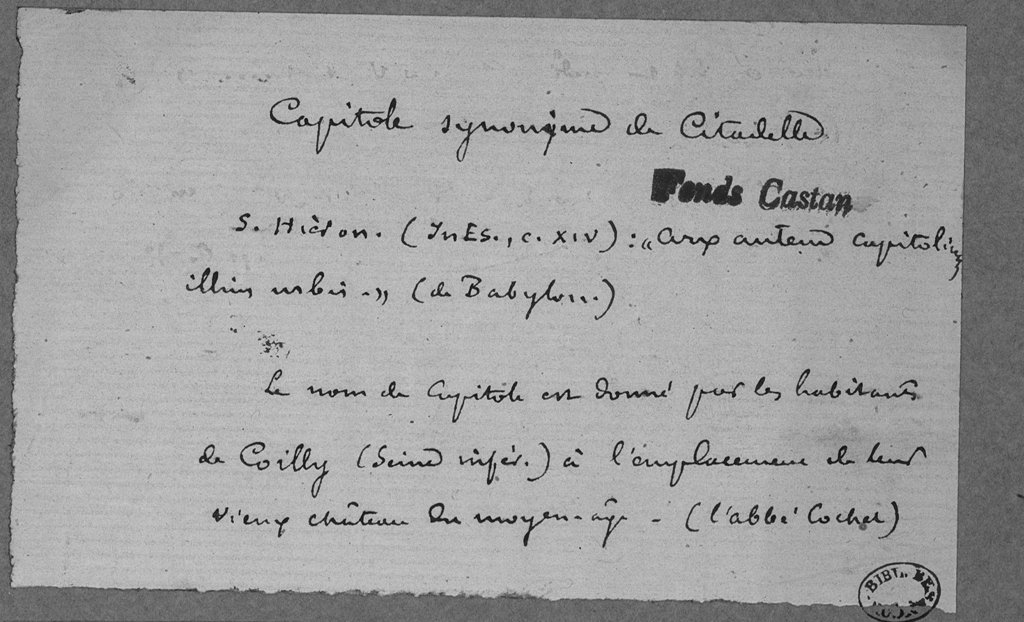 Capitole synonyme de Citadelle
Fonds Castan
S. Hièron. (In Es., c. XIV) : „ Arx autem Capitolium
illius urbis. „ (de Babylon.)
Le nom de Capitole est donné par les habitants
de Coilly (Seine infér.) à l'emplacement de leur
vieux château du moyen-âge. (l'abbé Cochet)
BIBL. BES